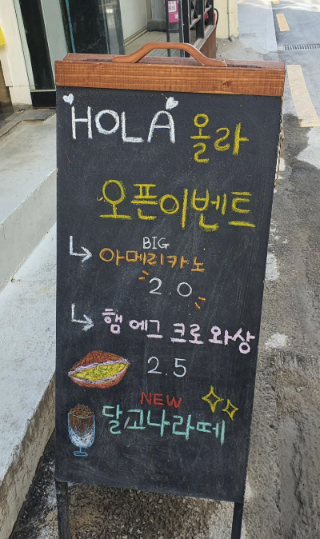 HOLA 올라
오픈이벤트
BIG
아메리카노
2.0
햄에그 크로와상
2.5
NEW
달고나라떼